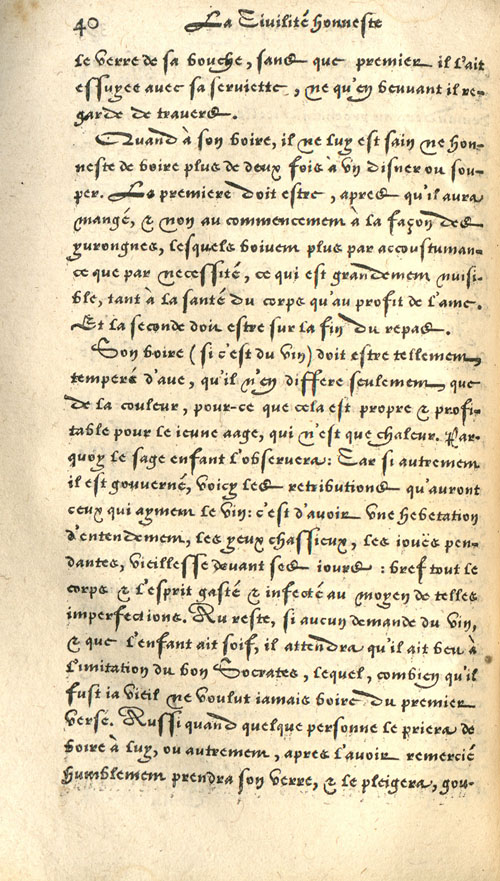 40 La Civilité honneste
le verre de sa bouche, sans que premier il l'ait
essuyee avec sa serviette, ne qu'en beuvant il re-
garde de travers.
Quand à son boire, il ne luy est sain ne hon-
neste de boire plus de deux fois à vn disner ou sou-
per. La premiere doit estre, apres qu'il aura
mangé, & non au commencement à la façon des
yurongnes, lesquels boivent plus par accoustuman-
ce que par necessité, ce qui est grandement nuisi-
ble, tant à la santé du corps qu'au profit de l'ame.
Et la seconde doit estre sur la fin du repas.
Son boire (si c'est du vin) doit estre tellement
temperé d'aue, qu'il n'en differe seulement, que
de la couleur, pour-ce que cela est propre & profi-
table pour le ieune aage, qui n'est que chaleur. Par-
quoy le sage enfant l'observera: Car si autrement
il est gouverné, voicy les retributions qu'auront
ceux qui ayment le vin: c'est d'avoir vne hebetation
d'entendement, les yeux chassieux, les ioues pen-
dantes, vieillesse devant ses iours: bref tout le
corps & l'esprit gasté & infecté au moyen de telles
imperfections. Au reste, si aucun demande du vin,
& que l'enfant ait soif, il attendra qu'il ait beu à
l'imitation du bon Socrates, lequel, combien qu'il
fust ia vieil ne voulut iamais boire du premier
verse. Aussi quand quelque personne le priera de
boire à luy, ou autrement, apres l'avoir remercié
humblement prendra son verre, & le pleigera, gou-